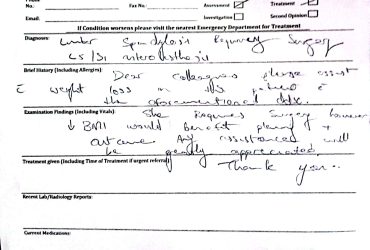 No: Fax No: Assessment Treatment
Email: Investigation Second Opinion
If Condition worsens please visit the nearest Emergency Department for Treatment
Diagnosis: Lumbar Spondylosis Requiring Surgery
L5/S1
Brief History (Including Allergies) Dear colleagues please assist
c weight loss in this patient c
the aforementioned
Examination Findings (Including Vitals) She Requires Surgery however
↓ BMI would benefit +
outcome Any assistance will
be greatly appreciated
Treatment given (Including Time of Treatment if urgent referral) Thank you..
Recent Lab/Radiology Reports:
Current Medications: